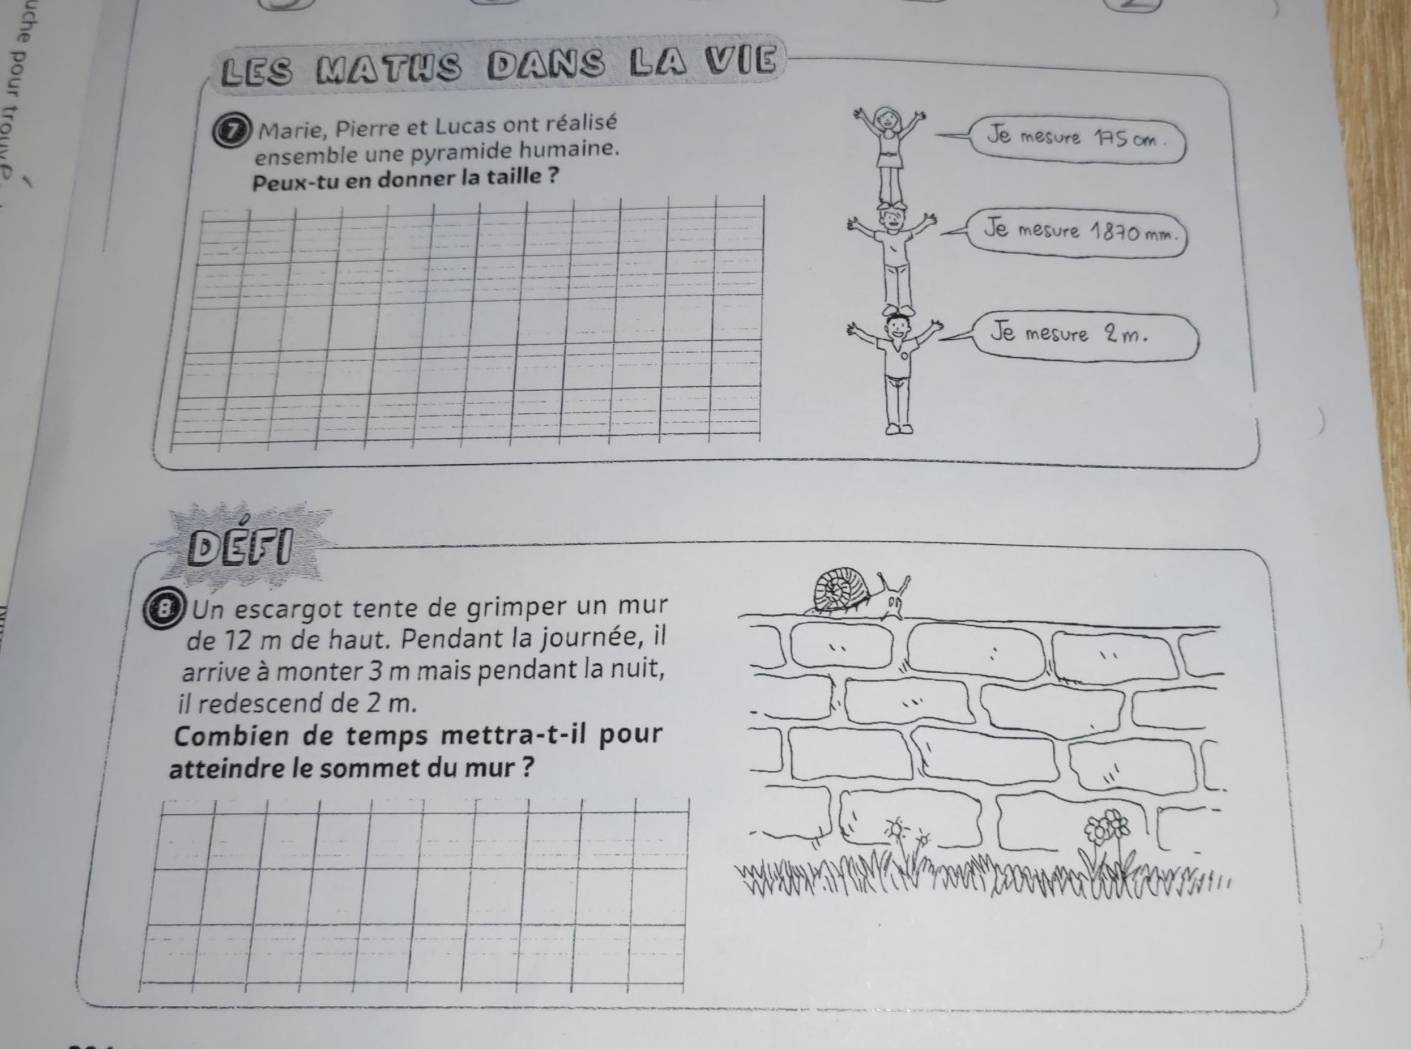 LES MATHS DANS LA VIE
7 Marie, Pierre et Lucas ont réalisé
ensemble une pyramide humaine.
Peux-tu en donner la taille ?
Je mesure 175 cm.
Je mesure 1870 mm.
Je mesure 2 m.
DÉFI
8 Un escargot tente de grimper un mur
de 12 m de haut. Pendant la journée, il
arrive à monter 3 m mais pendant la nuit,
il redescend de 2 m.
Combien de temps mettra-t-il pour
atteindre le sommet du mur ?
uche pour trouve